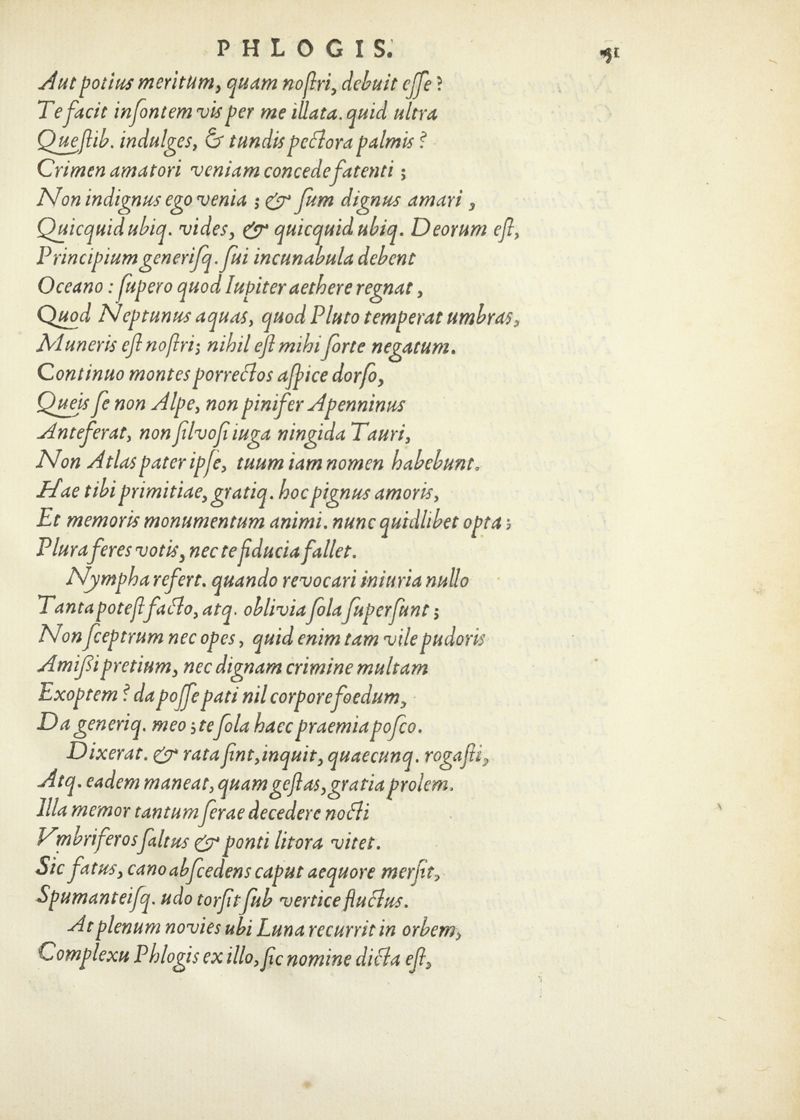 PHLOGIS. 51
Aut potius meritum, quam noſtri, debuit eſſe?
Te facit inſontem vis per me illata. quid ultra
Queſtib. indulges, & tundis pectora palmis?
Crimen amatori veniam concede fatenti;
Non indignus ego venia; & ſum dignus amari,
Quicquid ubiq. vides, & quicquid ubiq. Deorum eſt,
Principium generiſq. ſui incunabula debent
Oceano: ſupero quod Iupiter aethere regnat,
Quod Neptunus aquas, quod Pluto temperat umbras,
Muneris eſt noſtri; nihil eſt mihi forte negatum.
Continuo montes porrectos aſpice dorſo,
Queis ſe non Alpe, non pinifer Apenninus
Anteferat, non ſilvoſi iuga ningida Tauri,
Non Atlas pater ipſe, tuum iam nomen habebunt.
Hae tibi primitiae, gratiq. hoc pignus amoris,
Et memoris monumentum animi. nunc quidlibet opta;
Plura feres votis, nec te fiducia fallet.
Nympha refert. quando revocari iniuria nullo
Tanta poteſt facto, atq. oblivia ſola ſuperſunt;
Non ſceptrum nec opes, quid enim tam vile pudoris
Amißi pretium, nec dignam crimine multam
Exoptem? da poſſe pati nil corpore foedum,
Da generiq. meo; te ſola haec praemia poſco.
Dixerat. & rata ſint, inquit, quaecunq. rogaſti,
Atq. eadem maneat, quam geſtas, gratia prolem.
Illa memor tantum ſerae decedere nocti
Vmbriferos ſaltus & ponti litora vitet.
Sic fatus, cano abſcedens caput aequore merſit,
Spumanteiſq. udo torſit ſub vertice fluctus.
At plenum novies ubi Luna recurrit in orbem,
Complexu Phlogis ex illo, ſic nomine dicta eſt,